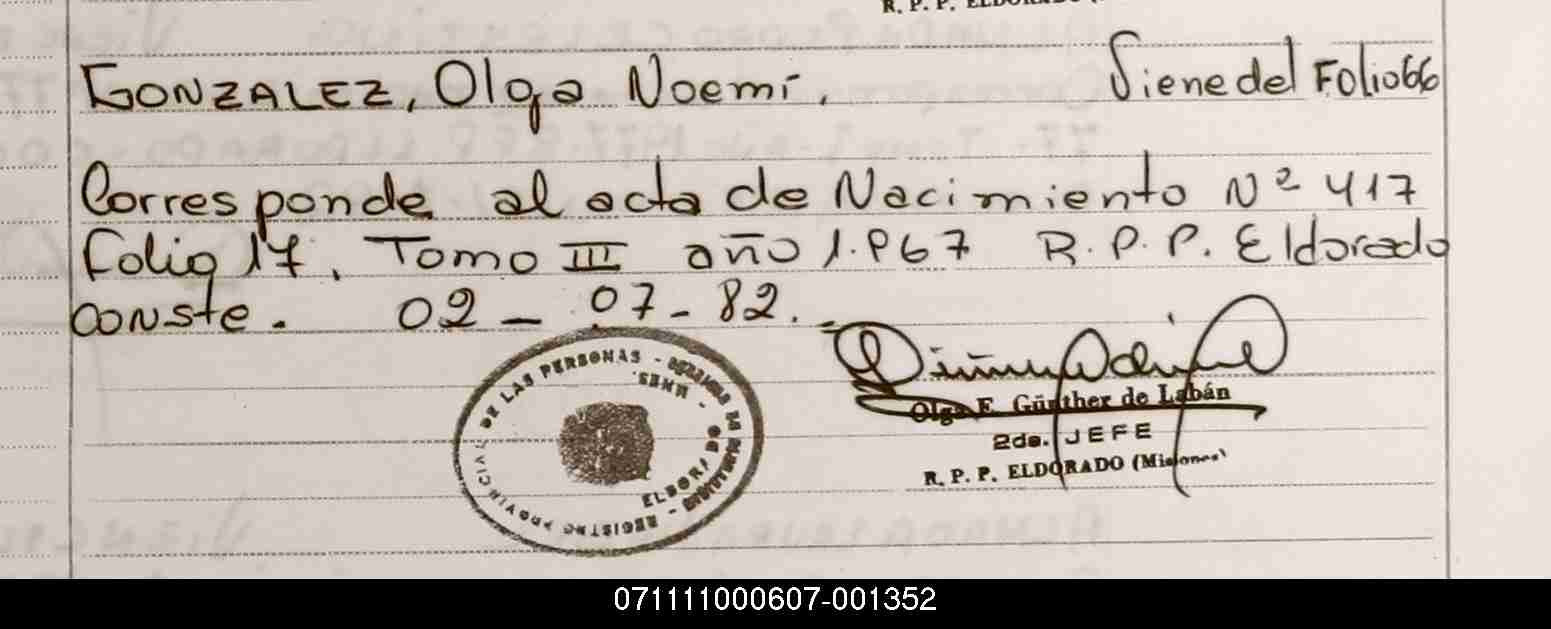 GONZALEZ, Olga Noemí. Viene del Folio 66
Corresponde al acta de Nacimiento Nº 417
Folio 17. Tomo III año 1.967 R.P.P. Eldorado
conste. 02 - 07 - 82.
DE LAS PERSONAS - REGISTRO PROVINCI
ELDOR
Olga E. Günther de Labán
2da. JEFE
R. P. P. ELDORADO (Misiones)
071111000607-001352